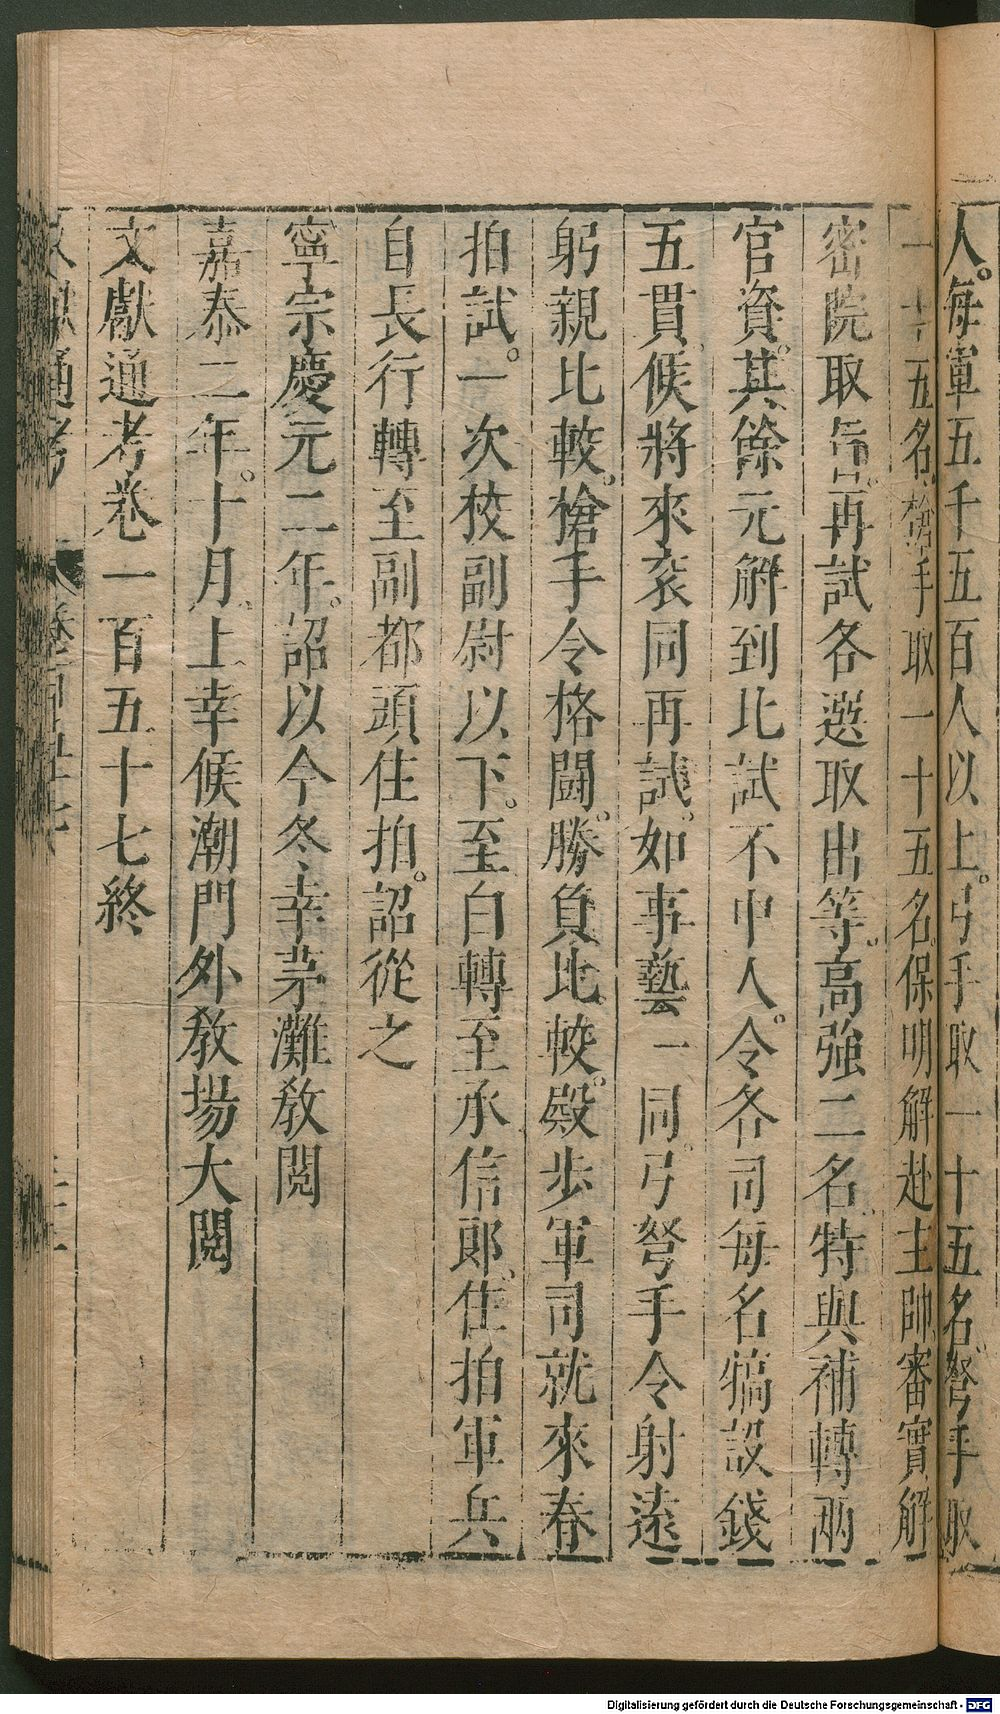 人。每軍五千五百人以上。弓手取一十五名。弩手取
一十五名。槍手取一十五名。保明解赴主帥審實解
密院取旨。再試各選取出等。高強二名。特與補轉兩
官資。其餘元解到比試不中人。令各司每名犒設錢
五貫。候將來衮同再試。如事藝一同。弓弩手令射遠
躬親比較。槍手令格鬪。勝負比較。殿步軍司就來春
拍試。一次校副尉以下。至白轉至承信郎。住拍軍兵
自長行轉至副都頭住拍。詔從之
寧宗慶元二年。詔以今冬幸茅灘教閱
嘉泰二年。十月上幸候潮門外教場大閱
文獻通考卷一百五十七終
文獻通考 卷一百五十七
Digitalisierung gefördert durch die Deutsche Forschungsgemeinschaft - DFG